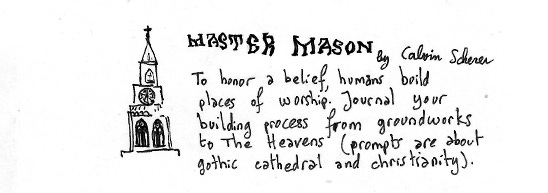 MASTER MASON by Calvin Scherer
To honor a belief, humans build
places of worship. Journal your
building process from groundworks
to The Heavens (prompts are about
gothic cathedral and christianity).